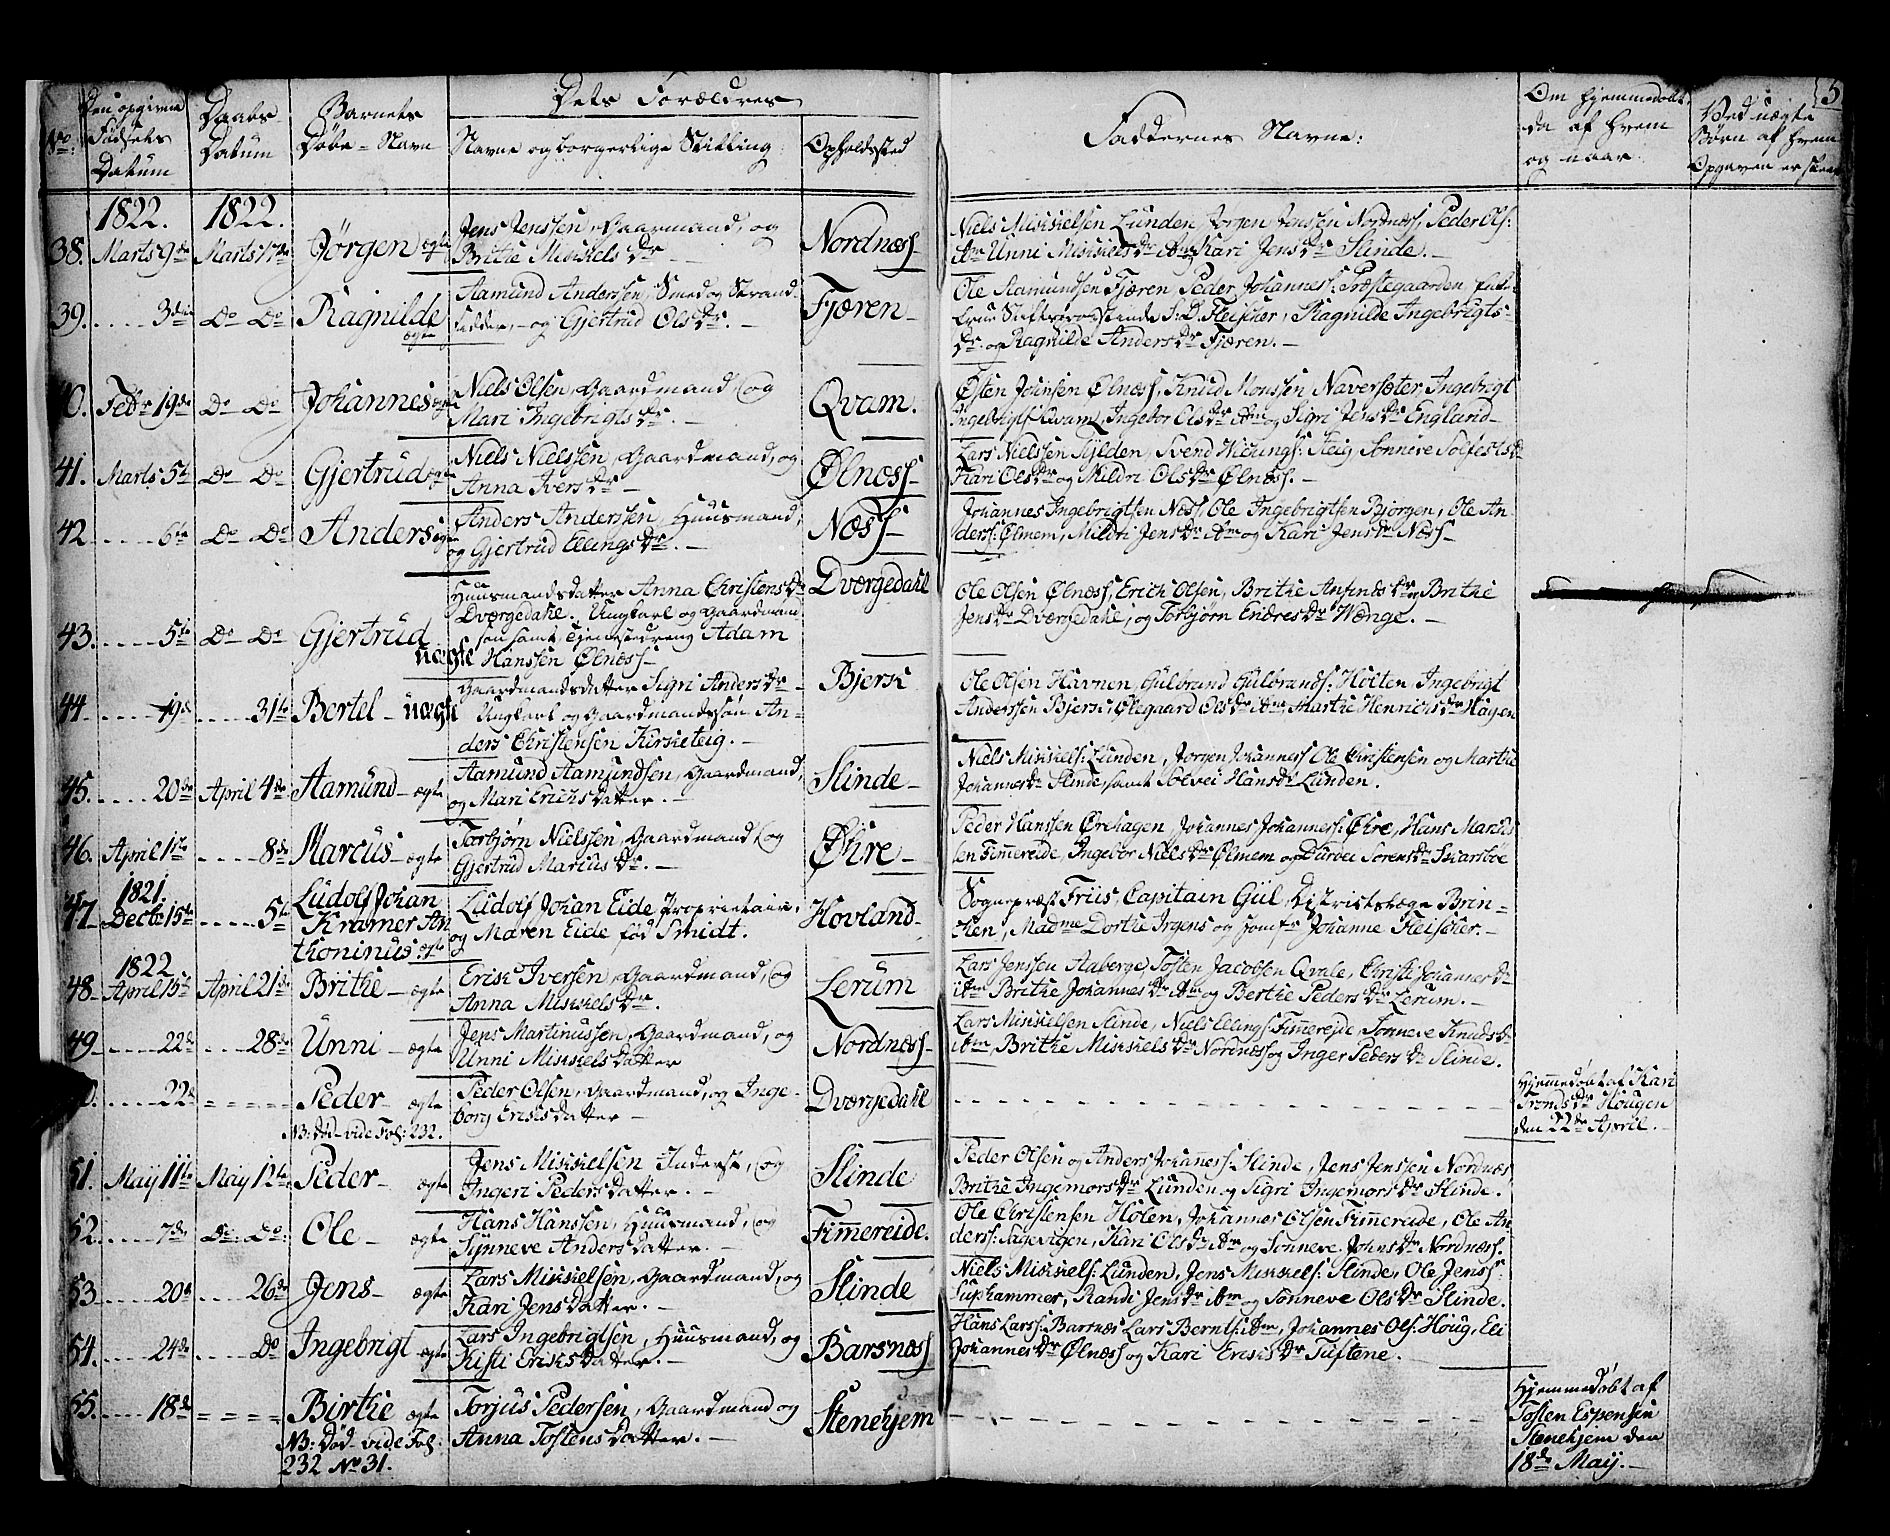 5
Den opgivne Fødsels Datum
Daabs Datum
Barnets Døbe-Navn
Dets Forældres
Navne og borgerlige Stilling
Opholdssted
Faddernes Navne:
Om hjemmedøbt, da af hvem og naar
Ved uægte Børn af hvem Opgaven er skeet
No:
1822. 1822.
38. Marts 9de Marts 17de Jørgen ægte Jens Jenssen, Gaarmand, og Brithe Mikkels Dr Nordnæss
Niels Mikkelsen Lunden, Jørgen Jenssen Nordnæss, Peder Ols: ibm Unni Mikkels Dr ibm og Kari Jens Dr Slinde.
39. 3die Do Do Ragnilde ægte Aamund Anderssen, Smed og Strandsidder, og Gjertrud Ols Dr. Fjæren
Ole Aamundsen Fjæren Peder Johanness: Præstegaarden, Enkefrue S: D. Fleischer, Ragnilde Ingebrigts Dr: og Ragnilde Anders Dr Fjæren.
40. Febr 19de Do Do Johannes ægte Niels Olsen, Gaardmand, og Mari Ingebrigts Dr. Qvam.
Østen Johnsen Ølnæss, Knud Monssen Naversæter, Ingebrigt Ingebrigts: Qvam, Ingebor Ols Dr ibm og Sigri Jens Dr England
41. Marts 5te Do Do Gjertrud ægte Niels Nielssen, Gaardmand, og Anna Ivers Dr Ølnæss
Lars Nielssen Sylden, Svend Steig Sønneve Solfests Dr Kari Ols Dr og Mildri Ols Dr Ølnæss.
42. 6te Do Do Anders ægte Anders Anderssen, Huusmand, og Gjertrud Ellings Dr. Næss
Johannes Ingebrigtsen Næss, Ole Ingebrigtsen Bjørgen, Ole Anderss: Ølmem, Mildri Jens Dr ibm og Kari Jens Dr Næss
43. 5te Do Do Gjertrud uægte Huusmandsdatter Anna Christens Dr Dværgedahl. Ungkarl og Gaardmandssøn samt Tjenestedreng Adam Hanssen Ølnæss Dværgedahl
Ole Olsen Ølnæss, Erich Olsen, Brithe Anfinds Dr og Brithe Jens Dr Dværgedahl, og Torbjørn Endres Dr Wænge.
44. 19de 31te Bertel uægte Gaardmandsdatter Sigri Anders Dr Ungkarl og Gaardmandssøn Anders Christensen Kirketeig. Bjerk
Ole Olsen Havnen, Guldbrand Guldbrands: Holten, Ingebrigt Anderssen Bjerk, Ølegaard Ols Dr ibm, Marthe Henrichs Dr Hagen
45. 20de April 4de Aamund ægte Aamund Aamundsen, Gaardmand, og Mari Erichsdatter. Slinde
Niels Mikkels: Lunden, Jørgen Johanness: Ole Christensen og Marthe Johannes Dr Slinde, samt Solvei Hans Dr Lunden.
46. April 1te 8de Marcus ægte Torbjørn Nielssen, Gaardmand, og Gjertrud Marcus Dr. Øhre
Peder Hanssen Ørehagen, Johannes Johanness: Øhre, Hans Marcussen Fimmereide, Ingebor Niels Dr Ølmem og Durdei Sørens Dr Skarsbøe
1821.
47. Decbr 15de 5te Ludolf Johan Kramer Anthoninus: ægte Ludolf Johan Eide Proprietair, og Maren Eide fød Smidt. Hovland
Sognepræst Friis, Capitain Gül, Districtslæge Brinchen, Madme Dorthe Irgens og Jomfr Johanne Fleischer.
1822.
48. April 15de April 21de Brithe ægte Erik Iversen, Gaardmand, og Anna Mikkels Dr. Lerum
Lars Jenssen Aaberge, Tosten Jacobsen Qvale, Christi Johannes Dr ibm Brithe Johannes Dr ibm og Berthe Peders Dr Lerum.
49. 22de 28de Unni ægte Jens Martinussen, Gaardmand, og Unni Mikkelsdatter Nordnæss
Lars Mikkelsen Slinde, Niels Ellings: Fimmereide, Sønneve Knuds Dr ibm, Brithe Mikkels Dr Nordnæss og Inger Peders Dr Slinde.
50. 22de Peder ægte NB: død vide Fol: 232. Peder Olsen, Gaardmand, og Ingeborg Eriksdatter Dværgedahl
Hjemmedøbt af Kari Tronds Dr Hougen den 22de April.
51. May 11te May 12te Peder ægte Jens Mikkelsen Inderst, og Ingeri Pedersdatter. Slinde
Peder Olsen og Anders Johanness: Slinde, Jens Jenssen Nordnæss Brithe Ingemors Dr Lunden og Sigri Ingemors Dr Slinde.
52. 7de Do Do: Ole ægte Hans Hanssen, Huusmand, og Synneve Andersdatter. Fimmereide.
Ole Christensen Holen, Johannes Olsen Fimmereide, Ole Anderss: Sagevigen, Kari Ols Dr ibm og Sønneve Johns Dr Nordnæss.
53. 20de 26de Jens ægte Lars Mikkelsen, Gaardmand, og Kari Jensdatter. Slinde
Niels Mikkels: Lunden, Jens Mikkels: Slinde, Ole Jenss: Suphammer, Randi Jens Dr ibm og Sønneve Ols Dr Slinde.
54. 24de Do Ingebrigt ægte Lars Ingebrigtsen, Huusmand, og Kisti Eriksdatter. Barsnæss
Hans Larss: Barsnæs Lars Bernts: ibm, Johannes Ols: Houg, Eli Johannes Dr Ølnæss og Kari Eriks Dr Tuftene.
55. 18de Birthe ægte NB: død vide Fol: 232 No 31. Torjus Pedersen, Gaardmand og Anna Tostensdatter. Stenehjem
Hjemmedøbt af Tosten Espensen Stenehjem den 18de May.